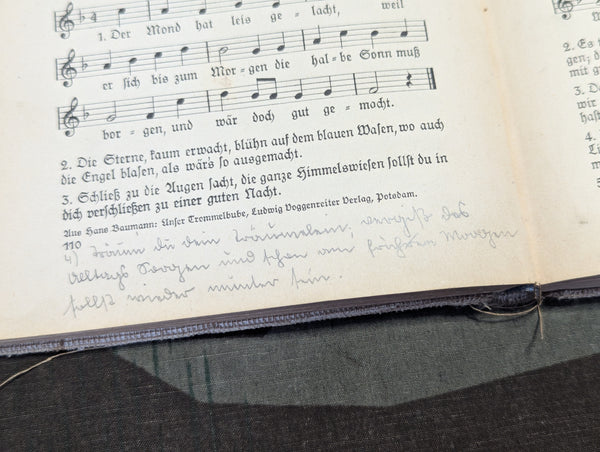 1. Der Mond hat leis ge = lacht, weil
er sich bis zum Mor = gen die hal = be Sonn muß
bor = gen, und wär doch gut ge = macht.
2. Die Sterne, kaum erwacht, blühn auf dem blauen Wasen, wo auch
die Engel blasen, als wär's so ausgemacht.
3. Schließ zu die Augen sacht, die ganze Himmelswiesen sollst du in
dich verschließen zu einer guten Nacht.
Aus Hans Baumann: Unser Trommelbube, Ludwig Voggenreiter Verlag, Potsdam.
110
4) Träum du dein Träumelein, vergiß des
Alltags Sorgen und schon am frühen Morgen
sollst wieder munter sein.
2. Es
gen; d
mit g
3. D
wir
hast
4.
Li
m
5